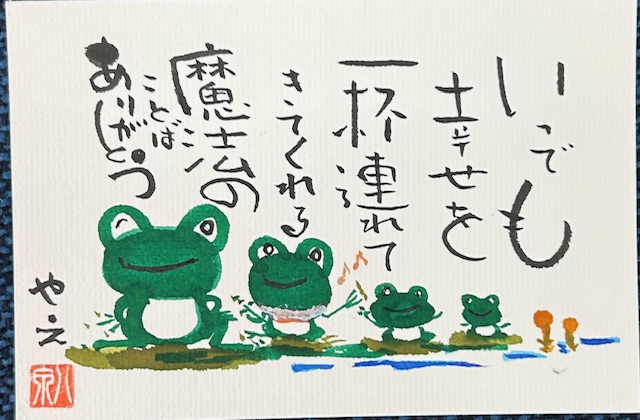 いつでも
幸せを
一杯連れて
きてくれる
魔法の
ことば
ありがとう
や・え